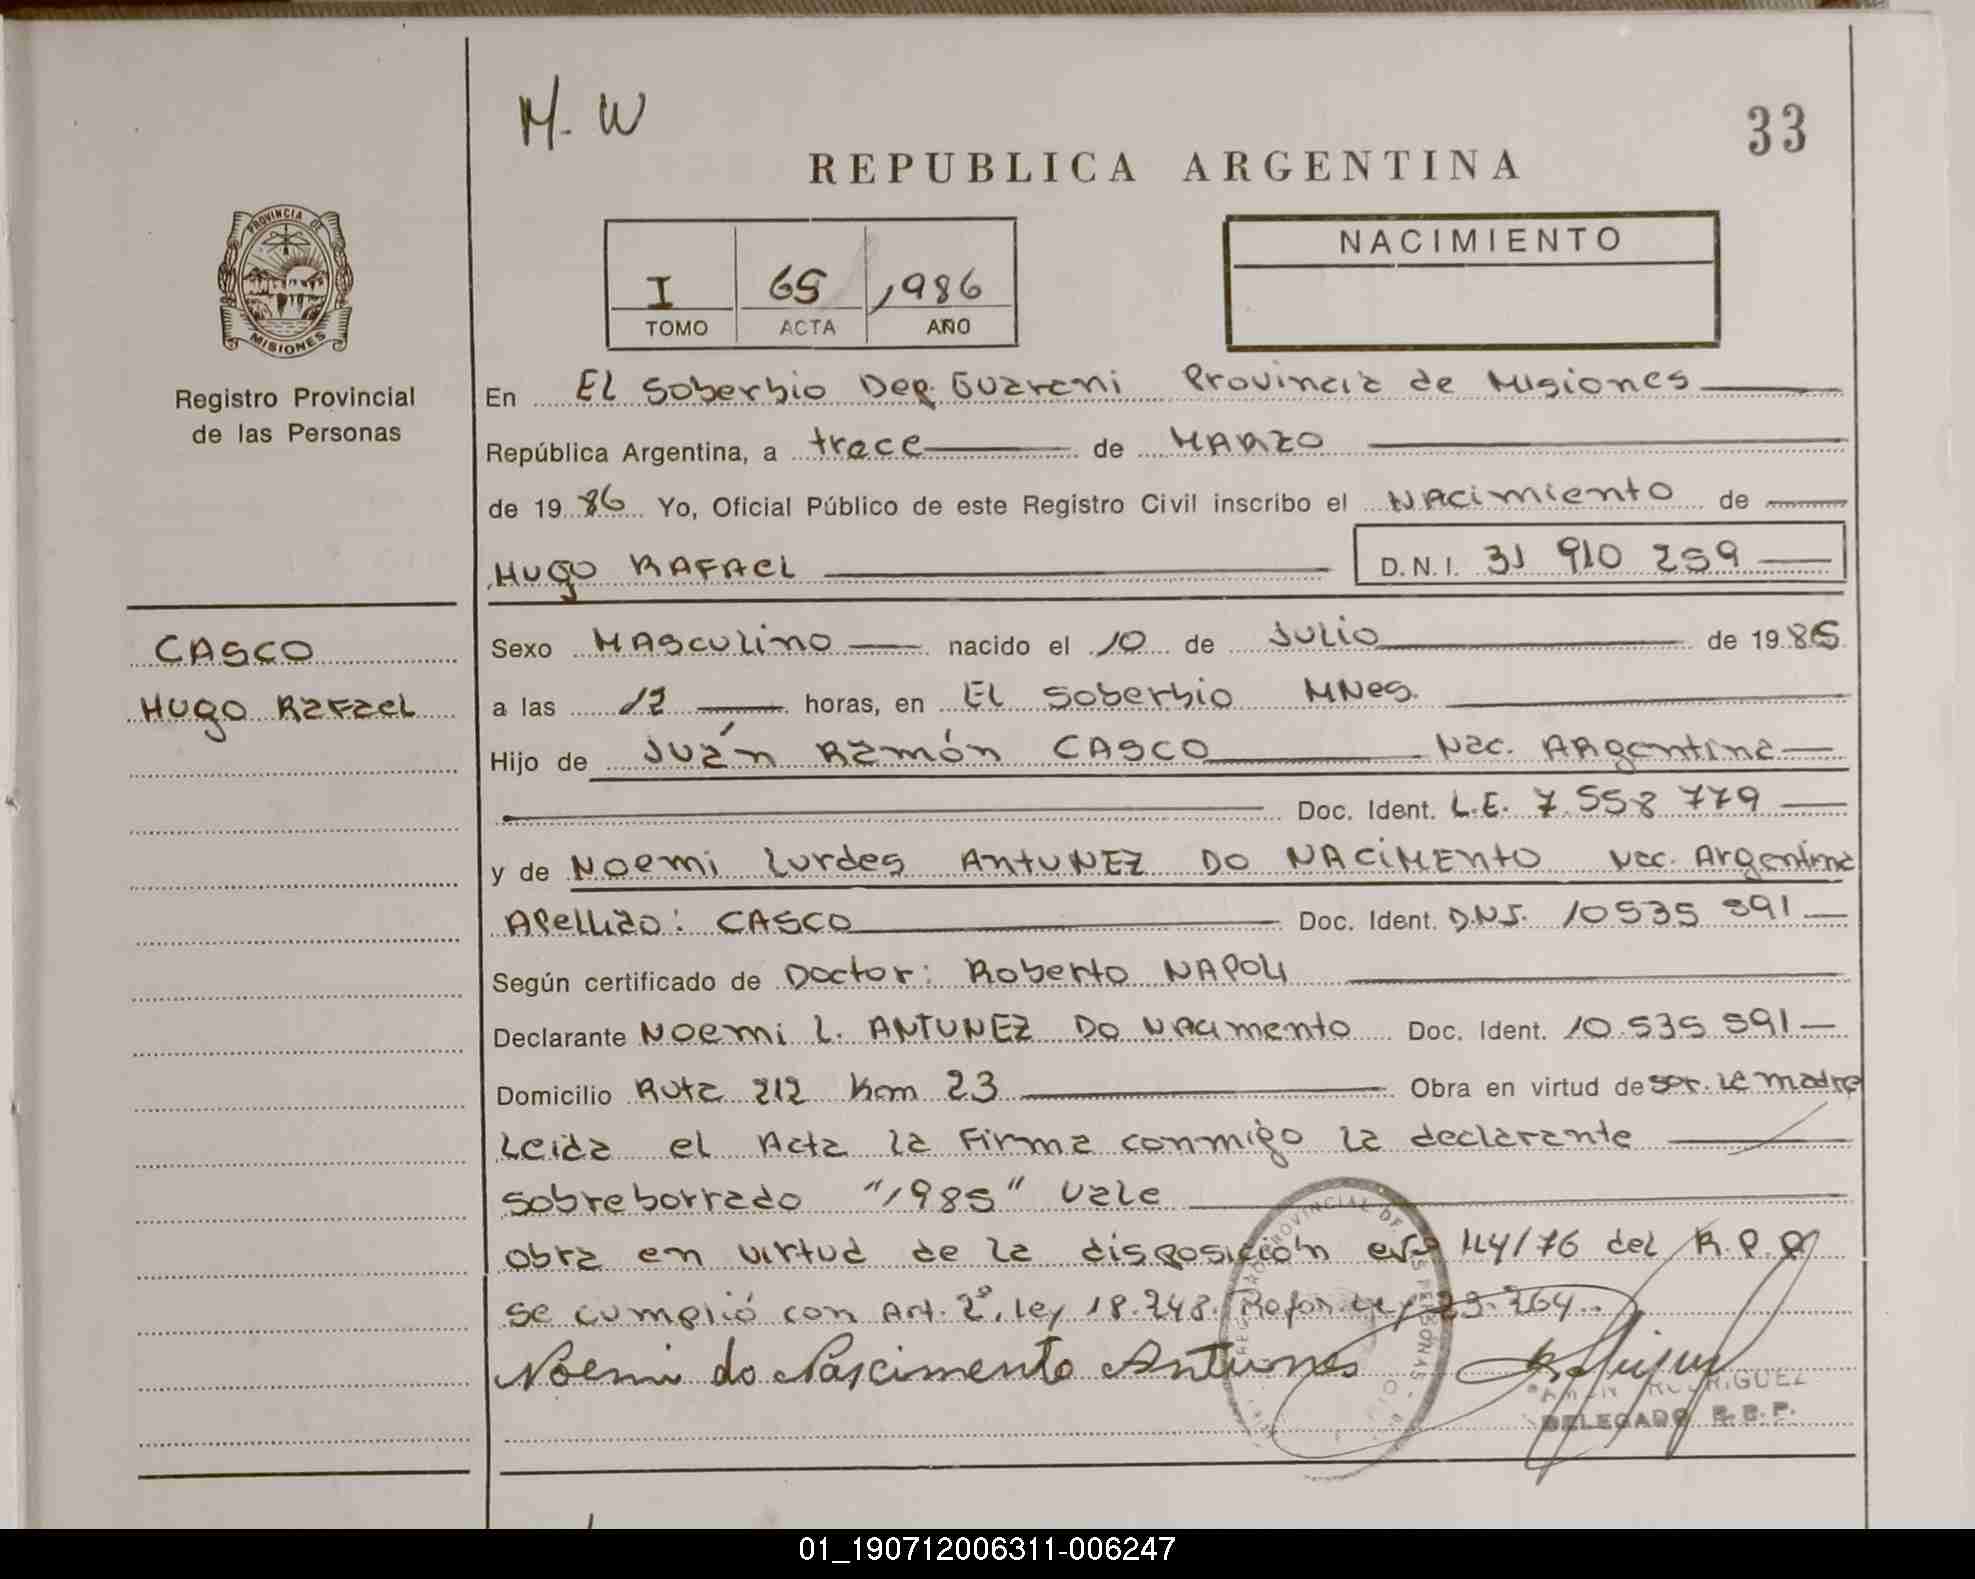 M. W
33
REPUBLICA ARGENTINA
PROVINCIA DE
MISIONES
I 65 1986
TOMO ACTA AÑO
NACIMIENTO
Registro Provincial
de las Personas
CASCO
Hugo Rafael
En El Soberbio Dep. Guarani Provincia de Misiones
República Argentina, a trece de MARZO
de 1986 Yo, Oficial Público de este Registro Civil inscribo el NACimiento de
HUgo RAFAEL D.N.I. 31 910 259
Sexo MAsculino nacido el 10 de JULIO de 1985
a las 12 horas, en El Soberbio MNes.
Hijo de Juán Ramón CASCO Nac. ARgentina
Doc. Ident. L.E. 7.558 779
y de NOEMI Lurdes ANTUNEZ DO NACIMENTO Nac. Argentina
Apellido: CASCO Doc. Ident. D.N.I. 10535 591
Según certificado de Doctor: Roberto NAPOLI
Declarante NOEMI L. ANTUNEZ DO NACIMENTO Doc. Ident. 10.535 591
Domicilio Ruta 212 Km 23 Obra en virtud de ser la madre
Leida el Acta la Firma conmigo la declarante
sobreborrado "1985" Vale
obra en virtud de la disposición Nº 114/76 del R.P.P
se cumplió con Art. 2º. Ley 18.248. Refor. Ley 23.264.
Noemi do Nascimento Antunes
RODRIGUEZ
DELEGADO R.P.P.
REGISTRO PROVINCIAL DE LAS PERSONAS
01_190712006311-006247